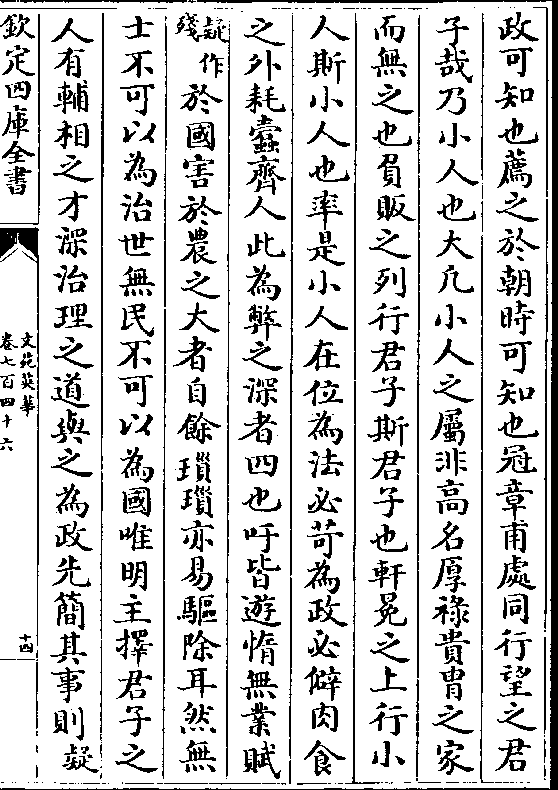 政可知也薦之於朝時可知也冠章甫處同行望之君
子哉乃小人也大凡小人之屬非高名厚祿貴胄之家
而無之也負販之列行君子斯君子也軒冕之上行小
人斯小人也率是小人在位為法必苛為政必僻肉食
之外耗蠹齊人此為弊之深者四也吁皆遊惰無業賦
疑作
殘
於國害於農之大者自餘瑣瑣亦易驅除耳然無
士不可以為治世無民不可以為國唯明主擇君子之
人有輔相之才深治理之道與之為政先簡其事則疑
欽定四庫全書
文苑英華
卷七百四十六
十四